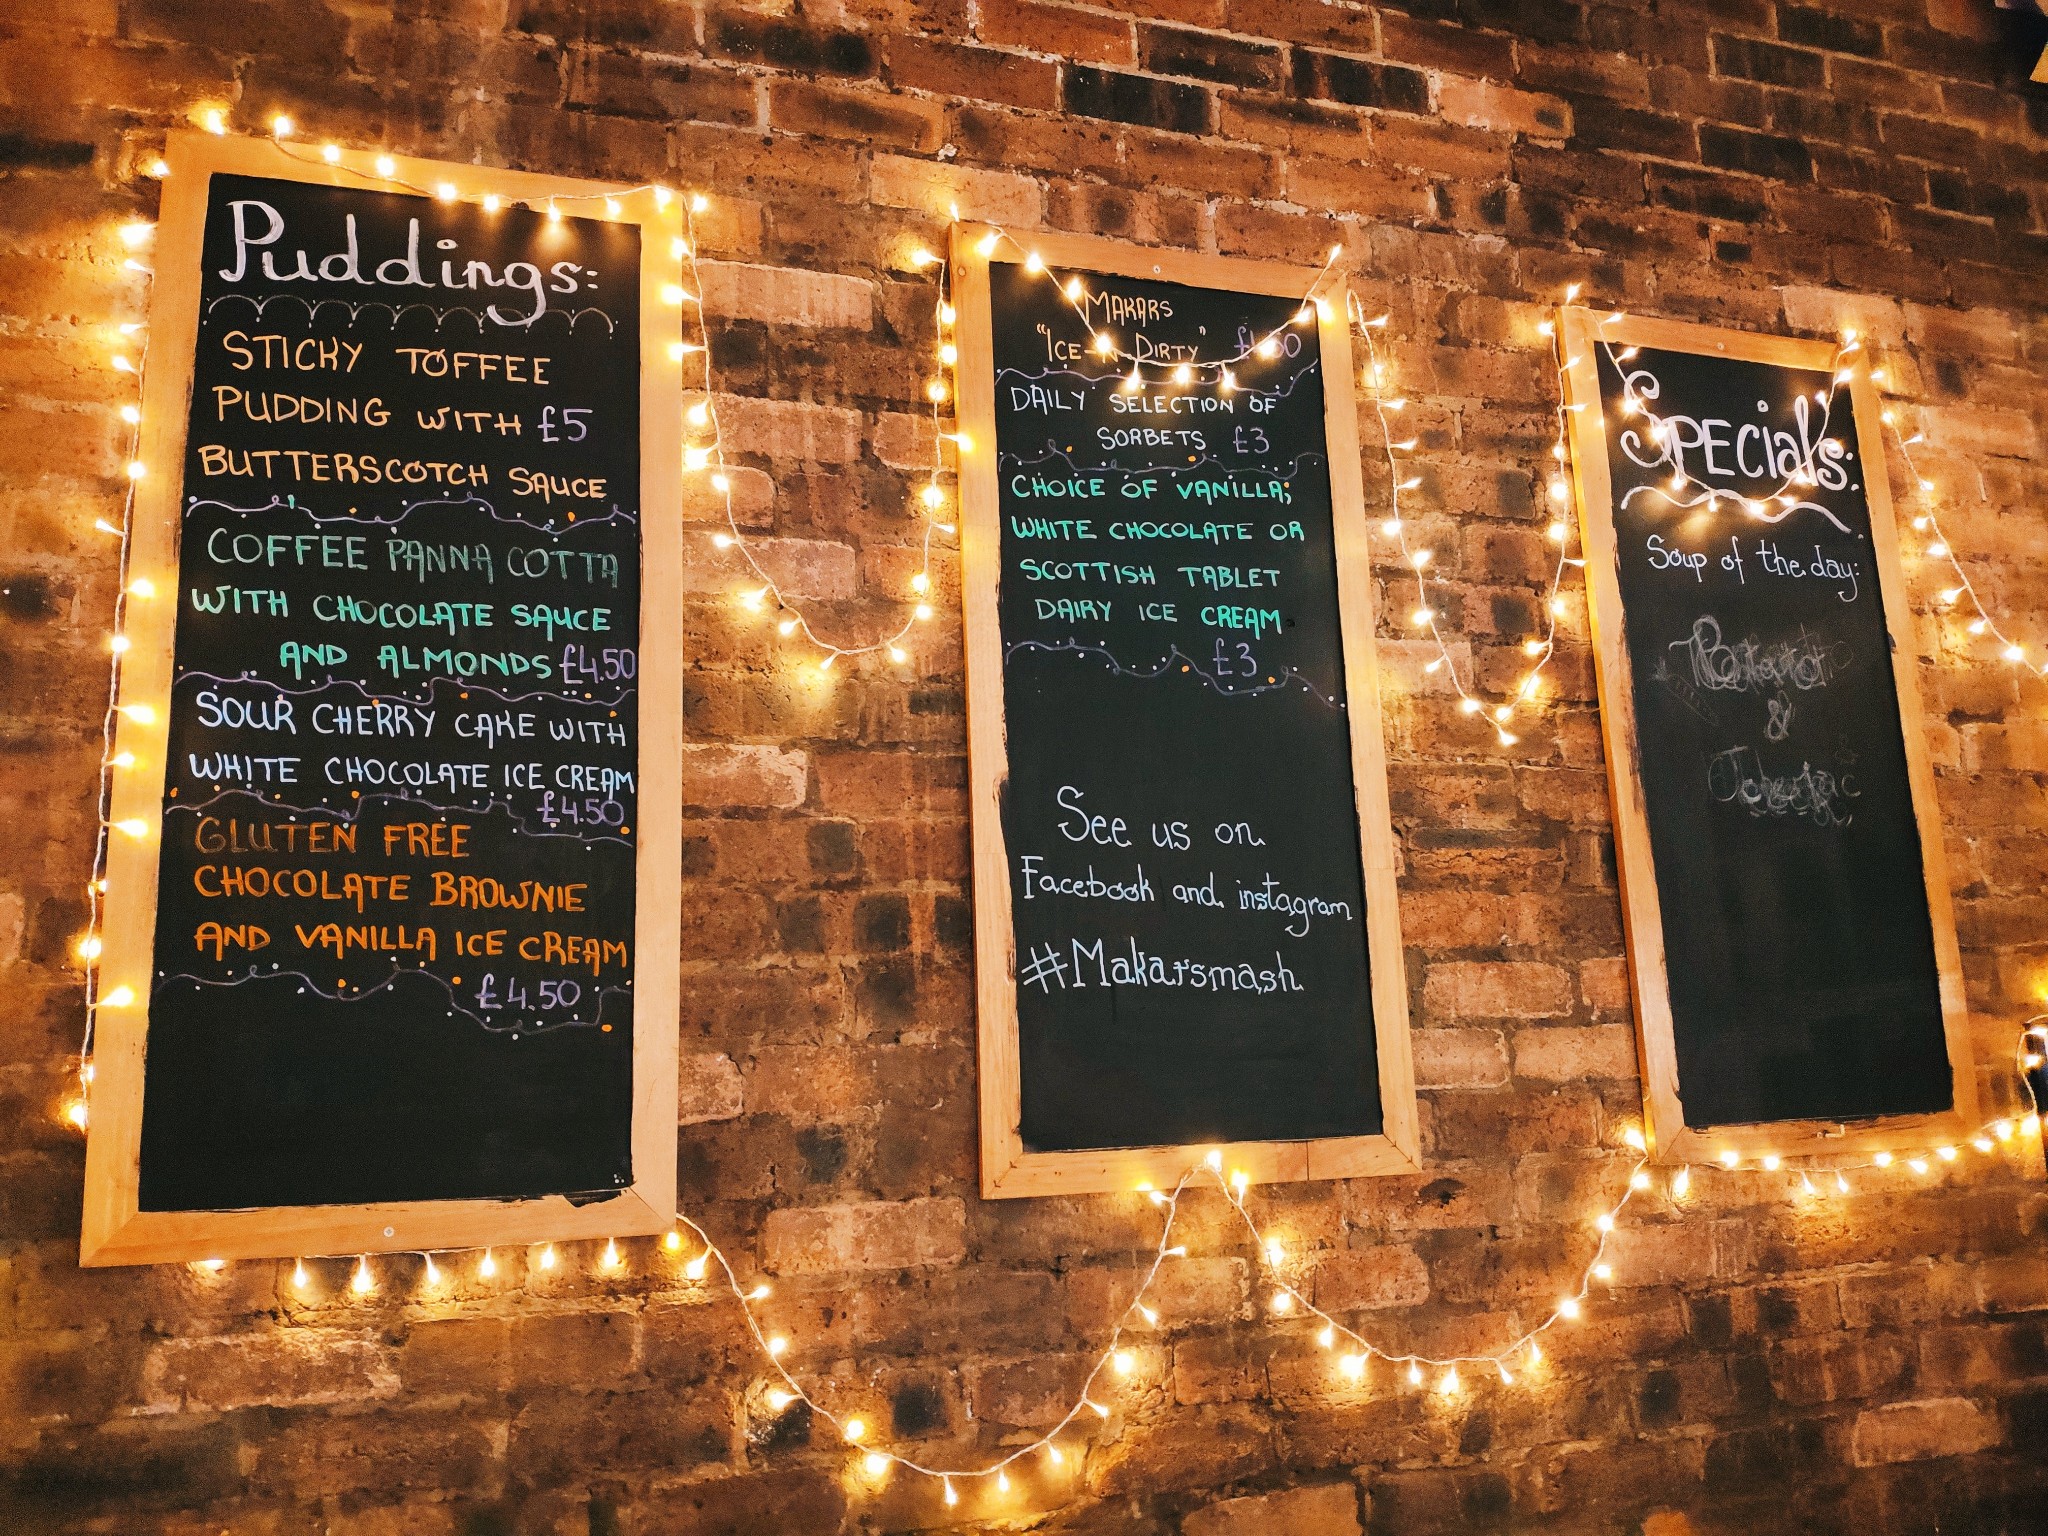 Puddings:
STICKY TOFFEE
PUDDING WITH £5
BUTTERSCOTCH SAUCE
COFFEE PANNA COTTA
WITH CHOCOLATE SAUCE
AND ALMONDS £4.50
SOUR CHERRY CAKE WITH
WHITE CHOCOLATE ICE CREAM
£4.50
GLUTEN FREE
CHOCOLATE BROWNIE
AND VANILLA ICE CREAM
£4.50
MAKARS
"ICE-N-DIRTY"
DAILY SELECTION OF
SORBETS £3
CHOICE OF VANILLA;
WHITE CHOCOLATE OR
SCOTTISH TABLET
DAIRY ICE CREAM
£3
See us on
Facebook and instagram
#Makarsmash
SPECIALS:
Soup of the day:
&